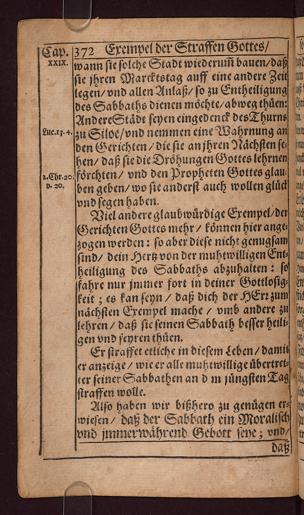 Cap. XXIX.
372 Exempel der Straffen Gottes/
wann sie solche Stadt wiederum̃ bauen/ daß
sie jhren Marcktstag auff eine andere Zeit
legen/ und allen Anlaß/ so zu Entheiligung
des Sabbaths dienen möchte/ abweg thüen:
Andere Städt seyen eingedenck des Thurns
Luc. 13. 4. zu Siloe/ und nemmen eine Wahrnung an
den Gerichten/ die sie an jhren Nächsten se-
hen/ daß sie die Dröhungen Gottes lehrnen
2. Chr. 20. förchten/ und den Propheten Gottes glau-
v. 20. ben geben/ wo sie anderst auch wollen glück
und segen haben.
Viel andere glaubwürdige Exempel/ der
Gerichten Gottes mehr/ können hier ange-
zogen werden: so aber diese nicht genugsam
sind/ dein Hertz von der muhtwilligen Ent-
heiligung des Sabbaths abzuhalten: so
fahre nur jmmer fort in deiner Gottlosig-
keit; es kan seyn/ daß dich der HErr zum
nächsten Exempel mache/ umb andere zu
lehren/ daß sie seinen Sabbath besser heili-
gen und feyren thüen.
Er straffet etliche in diesem Leben/ damit
er anzeige/ wie er alle muhtwillige übertret-
ter seiner Sabbathen an d m jüngsten Tag
straffen wolle.
Also haben wir bißhero zu genügen er-
wiesen/ daß der Sabbath ein Moralisch
und jmmerwährend Gebott seye; und/
daß